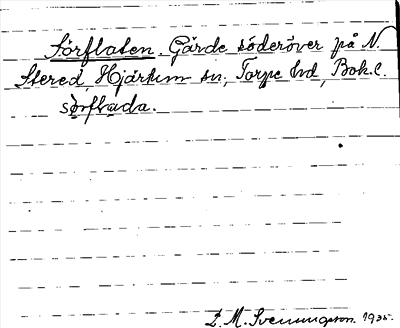 Sörflaten. Gärde söderöver på N.
Stered, Hjärtum sn, Torpe hd, Boh.l.
sørflada.
2. M. Svenungson. 1935.